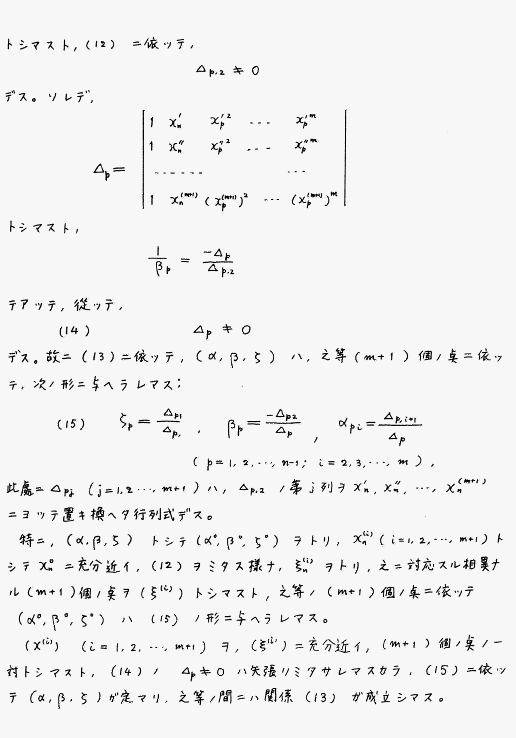 トシマスト,(12) ニ依ッテ,
Δp.2 ≠ 0
デス。ソレデ,
Δp = | 1 xn′ xp′² ... xp′ᵐ |
| 1 xn″ xp″² ... xp″ᵐ |
| ...... ... |
| 1 xn⁽ᵐ⁺¹⁾ (xp⁽ᵐ⁺¹⁾)² ... (xp⁽ᵐ⁺¹⁾)ᵐ |
トシマスト,
1/βp = −Δp/Δp.2
テアッテ, 從ッテ,
(14) Δp ≠ 0
デス。故ニ (13) ニ依ッテ, (α, β, ζ) ハ, 之等 (m+1) 個ノ点ニ依ッ
テ, 次ノ形ニ与ヘラレマス:
(15) ζp = Δp1/Δp, , βp = −Δp2/Δp , αpi = Δp,i+1/Δp
( p = 1, 2, ..., n-1; i = 2, 3, ..., m ),
此處ニ Δpj (j = 1, 2 ..., m+1) ハ, Δp.2 ノ第 j 列ヲ xn′, xn″, ..., xn⁽ᵐ⁺¹⁾
ニヨッテ置キ換ヘタ行列式デス。
特ニ, (α, β, ζ) トシテ (α°, β°, ζ°) ヲトリ, xn⁽ⁱ⁾ (i = 1, 2, ..., m+1) ト
シテ xn° ニ充分近イ, (12) ヲミタス様ナ, ξn⁽ⁱ⁾ ヲトリ, 之ニ対応スル相異ナ
ル (m+1) 個ノ点ヲ (ξ⁽ⁱ⁾) トシマスト, 之等ノ (m+1) 個ノ点ニ依ッテ
(α°, β°, ζ°) ハ (15) ノ形ニ与ヘラレマス。
(x⁽ⁱ⁾) (i = 1, 2, ..., m+1) ヲ, (ξ⁽ⁱ⁾) ニ充分近イ, (m+1) 個ノ点ノ一
対トシマスト, (14) ノ Δp ≠ 0 ハ矢張リミタサレマスカラ, (15) ニ依ッ
テ (α, β, ζ) ガ定マリ, 之等ノ間ニハ関係 (13) ガ成立シマス。